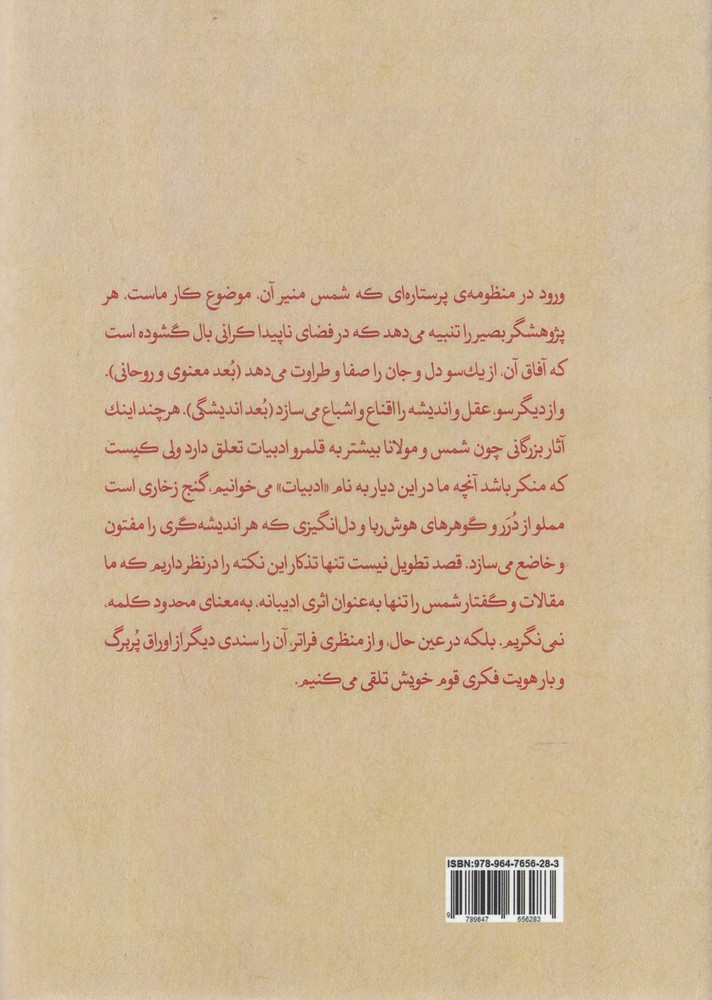 ورود در منظومه‌ی پرستاره‌ای که شمس منیر آن، موضوع کار ماست، هر
پژوهشگر بصیر را تنبیه می‌دهد که در فضای ناپیدا کرانی بال گشوده است
که آفاق آن، از یك‌سو دل و جان را صفا و طراوت می‌دهد (بُعد معنوی و روحانی)،
و از دیگر سو، عقل و اندیشه را اقناع و اشباع می‌سازد (بُعد اندیشگی)، هرچند اینك
آثار بزرگانی چون شمس و مولانا بیشتر به قلمرو ادبیات تعلق دارد ولی کیست
که منکر باشد آنچه ما در این دیار به نام «ادبیات» می‌خوانیم، گنج زخاری است
مملو از دُرَر و گوهرهای هوش‌ربا و دل‌انگیزی که هر اندیشه‌گری را مفتون
و خاضع می‌سازد. قصد تطویل نیست تنها تذکار این نکته را درنظر داریم که ما
مقالات و گفتار شمس را تنها به‌عنوان اثری ادیبانه، به‌معنای محدود کلمه،
نمی‌نگریم. بلکه در عین حال، و از منظری فراتر، آن را سندی دیگر از اوراق پُربرگ
و بار هویت فکری قوم خویش تلقی می‌کنیم.
ISBN:978-964-7656-28-3
9 789647 656283